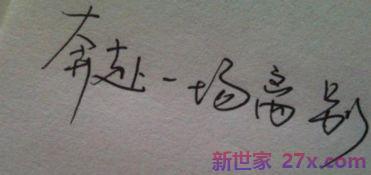 奔赴一场离别
新世家 27x.com